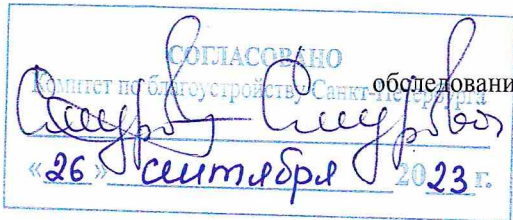 СОГЛАСОВАНО
Комитет по благоустройству Санкт-Петербурга
обследовани
«26» сентября 2023 г.